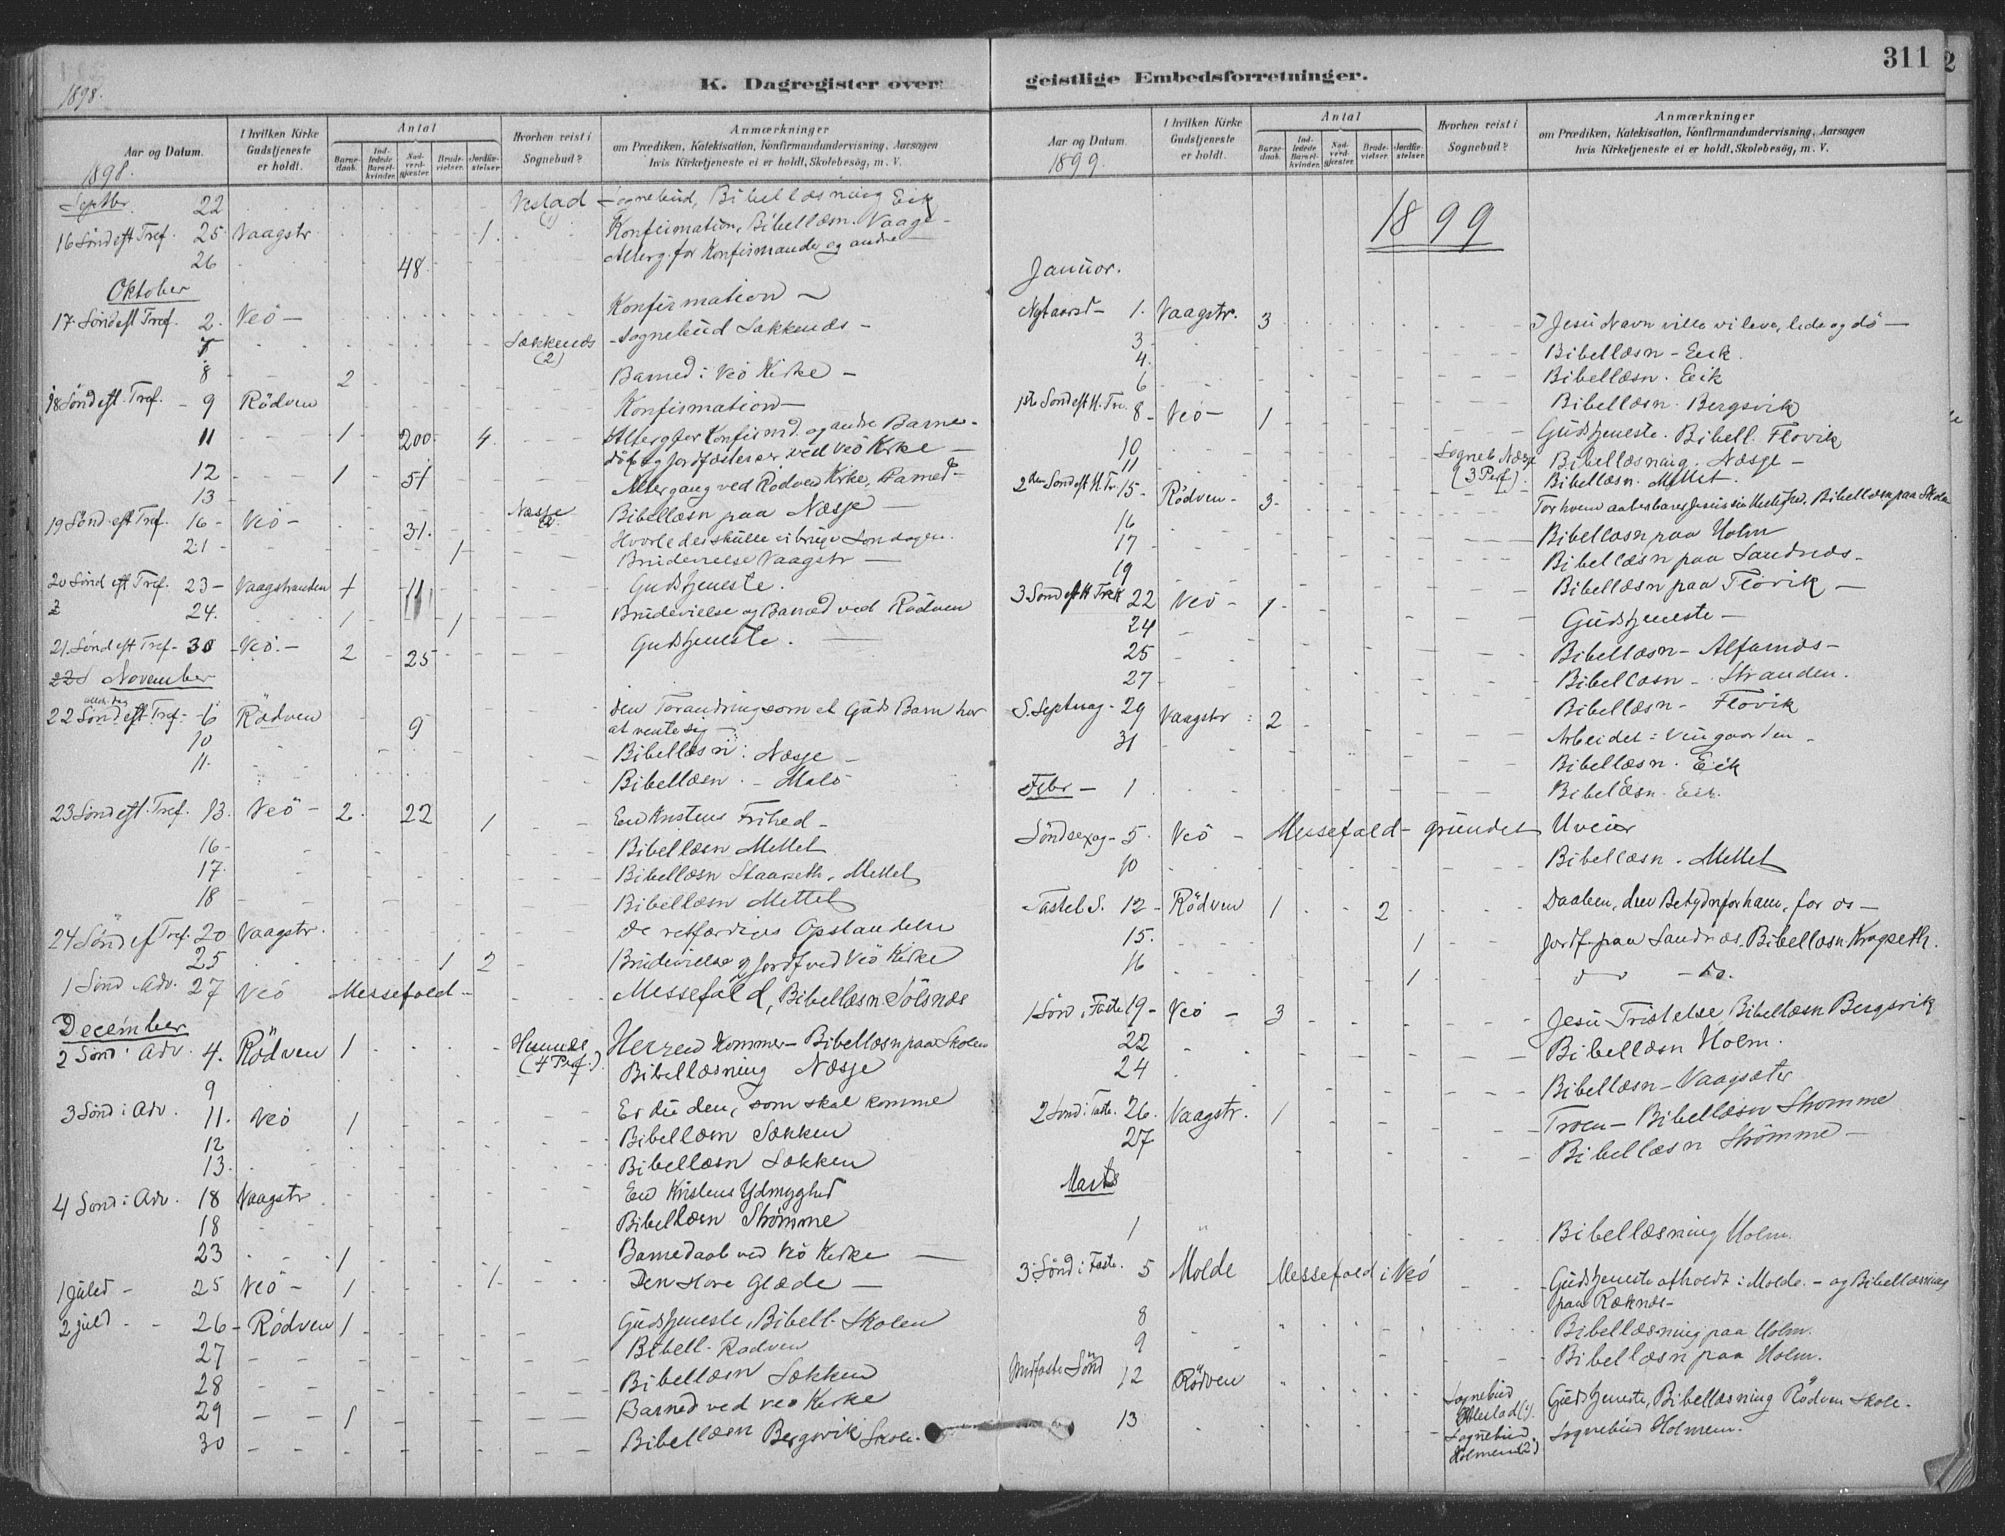 1898.
K. Dagregister over
Aar og Datum. I hvilken Kirke Gudstjeneste er holdt. Antal Barnedaab. Indledede Barselkvinder. Nadverdgjæster. Brudevielser. Jordfæstelser. Hvorhen reist i Sognebud? Anmærkninger om Prædiken, Katekisation, Konfirmandundervisning, Aarsagen hvis Kirketjeneste ei er holdt, Skolebesøg, m. V.
1898.
Septbr. 22 Vestad (1) Sognebud, Bibellæsning Eik
16 Sønd eft Tref. 25 Vaagstr. 1 Konfirmation, Bibellæsn. Vaage
26 48 Alterg. for Konfirmander og andre
Oktober
17. Sønd eft Tref. 2. Veö Konfirmation
7 Sækkenæs (2) Sognebud Sækkenæs
8 2 Barned i Veö Kirke
18 Sønd eft. Tref. 9 Rödven Konfirmation
11 1 200 4. Alterg for Konfirmd. og andre Barne-
döb og Jordfæstelser ved Veö Kirke
12 1 51 Altergang ved Rödven Kirke, Barned
13 Næsje Bibellæsn paa Næsje
19 Sønd. eft Tref. 16 Veö 31. Hvorledes skulle vi bruge Søndagen.
21 1 Brudevielse Vaagstr
20 Sønd eft Tref. 23 Vaagstranden 1 11 Gudstjeneste.
24. 1 1 Brudevielse og Barned ved Rödven
21. Sønd eft Tref. 30 Veö. 2 25 Gudstjeneste.
November
22 Sønd eft Tref. 6 Rödven 9 Den Forandring som et Guds Barn har
at vente sig
10 Bibellæsn: Næsje
11. Bibellæsn. - Malö
23 Sønd eft. Tref. 13. Veö 2. 22 1 En Kristens Frihed
16 Bibellæsn Mettet
17. Bibellæsn Staareth. Mettet
18 Bibellæsn Mettet
24 Sønd ef Tref. 20 Vaagstr. De retfærdiges Opstandelse
25 1 2 Brudevielse og Jordf ved Veö Kirke
1 Sønd Adv. 27 Veö Messefald Messefald, Bibellæsn. Sölsnæs
December
2 Sønd i Adv. 4. Rödven 1 (4 Pers.) Herren kommer - Bibellæsn paa Skolen
9 Bibellæsning Næsje
3 Sønd i Adv. 11. Veö 1 Er du den, som skal komme
12 Bibellæsn Sækken
13. Bibellæsn Sækken
4 Sønd i Adv. 18 Vaagstr. En Kristens Ydmyghed
18 Bibellæsn Strömme
23 1 Barnedaab ved Veö Kirke
1 Juled 25 Veö 1 1 Den store Glæde
2 Juld 26 Rödven 1 Gudstjeneste, Bibell. Skolen
27 Bibell. Rödven
28 Bibellæsn Sækken
29 1 Barned ved Veö Kirke
30 Bibellæsn Bergsvik Skole.
geistlige Embedsforretninger.
311
Aar og Datum I hvilken Kirke Gudstjeneste er holdt. Antal Barnedaab. Indledede Barselkvinder. Nadverdgjæster. Brudevielser. Jordfæstelser. Hvorhen reist i Sognebud? Anmærkninger om Prædiken, Katekisation, Konfirmandundervisning, Aarsagen hvis Kirketjeneste ei er holdt, Skolebesøg, m. V.
1899.
1899
Januar.
Nytaarsd 1. Vaagstr. 3 I Jesu Navn ville vi leve, lide og dö
3 Bibellæsn - Eik.
4. Bibellæsn. Eik
6 Bibellæsn. Bergsvik
1ste Sønd eft H. Tre. 8 Veö 1 Gudstjeneste. Bibell. Flovik
10 Sogneb Næsje (3 Pers.) Bibellæsning. Næsje
11 Bibellæsn. Mettet.
2den Sønd eft H. Tr. 15 Rödven 3 For hvem aabenbarer Jesus sin Herlighed. Bibellæsn paa Skolen
16 Bibellæsn paa Holm
17 Bibellæsn paa Sandnæs
19 Bibellæsn paa Flovik
3 Sønd eft H Trek 22 Veö 1 Gudstjeneste
24 Bibellæsn - Alfarnæs
25 Bibellæsn - Stranden.
27 Bibellæsn - Flovik
S. Septuag 29 Vaagstr 2 Arbeidet i Viingaarden
31 Bibellæsn. Eik
Febr 1. Bibellæsn. Eik.
Sønd sexag 5. Veö Messefald grundet Uveier
10 Bibellæsn. Mettet
Fastel S. 12 Rödven 1 2 Daaben, dens Betydn for ham, for os
15. 1 Jordf. paa Sandnæs. Bibellæsn. Kragseth.
16 1 do do.
1 Sønd i Faste 19 Veö 3 Jesu Fristelse, Bibellæsn Bergsvik
22 Bibellæsn Holm.
24 Bibellæsn - Vaagsæter
2 Sønd i Faste. 26. Vaagstr. 1 Troen - Bibellæsn Strömme
27 Bibellæsn Strömme
Marts
1 " Bibellæsning Holm.
3 Sønd i Faste. 5 Molde Messefald i Veö Gudstjeneste afholdt i Molde. - og Bibellæsning
paa Reknæs
8 Bibellæsning paa Holm.
9 Bibellæsn paa Holm.
Midfaste Sönd 12 Rödven Sognebud Gudstjeneste, Bibellæsning Rödven Skole.
13 Sognebud Holmen (2) Sognebud Holmem.